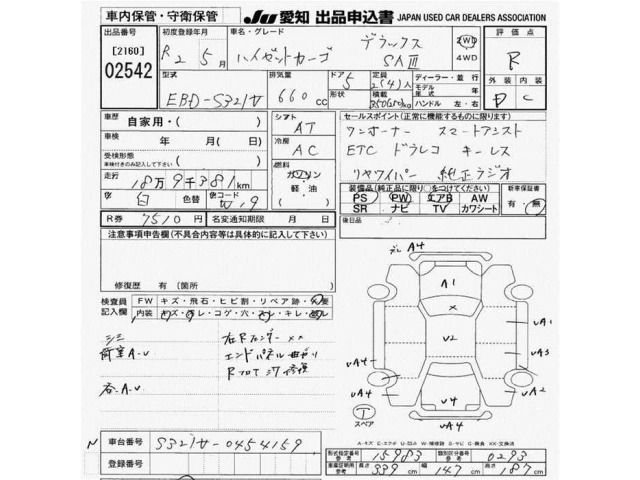 車内保管・守衛保管
JU 愛知 出品申込書 JAPAN USED CAR DEALERS ASSOCIATION
出品番号
[2160]
02542
初度登録年月
R2 5月
車名・グレード
ハイゼットカーゴ デラックス SAⅢ
2WD
4WD
評価点
R
外装 内装
D C
型式
EBD-S321V
排気量
660cc
ドア
5
形状
定員
2(4)人
積載
350(250)kg
ディーラー・並行
モデル年式 年
ハンドル 左・右
車歴
自家用・( )
車検
年 月( 日)
受検形態
車検付きのみ記入して下さい
( )
走行
18万9千381km
色
白
色替
色コード
W19
シフト
AT
冷房
AC
燃料
ガソリン
軽・油
( )
セールスポイント(正常に機能するものに限ります)
ワンオーナー スマートアシスト
ETC ドラレコ キーレス
リヤワイパー 純正ラジオ
装備品(純正品に限り○をつけてください)
PS PW エアB AW
SR ナビ TV カワシート
新車保証書
有・無
後日品
R券 7510円
名変通知期限 月 日
注意事項申告欄(不具合内容等は具体的に記入して下さい)
修復歴 有(箇所 )
検査員記入欄
FW キズ・飛石・ヒビ割・リペア跡・交要
内装
シミ
荷室A-U
右Rフェンダー xx
エンドパネル曲がり
Rフロア 修復
N
車台番号 S321V-0454159
登録番号
A4
A1
x
V2
V4
UA1
UA3
UA2
UA4
UA4
UA4
T
スペア
A-キズ E-エクボ U-凹み W-補修跡 S-サビ C-腐食 XX-交換済
形式指定番号 参考 15983
類別区分番号 参考 0293
車庫証明用 参考
長さ 339cm
幅 147cm
高さ 187cm